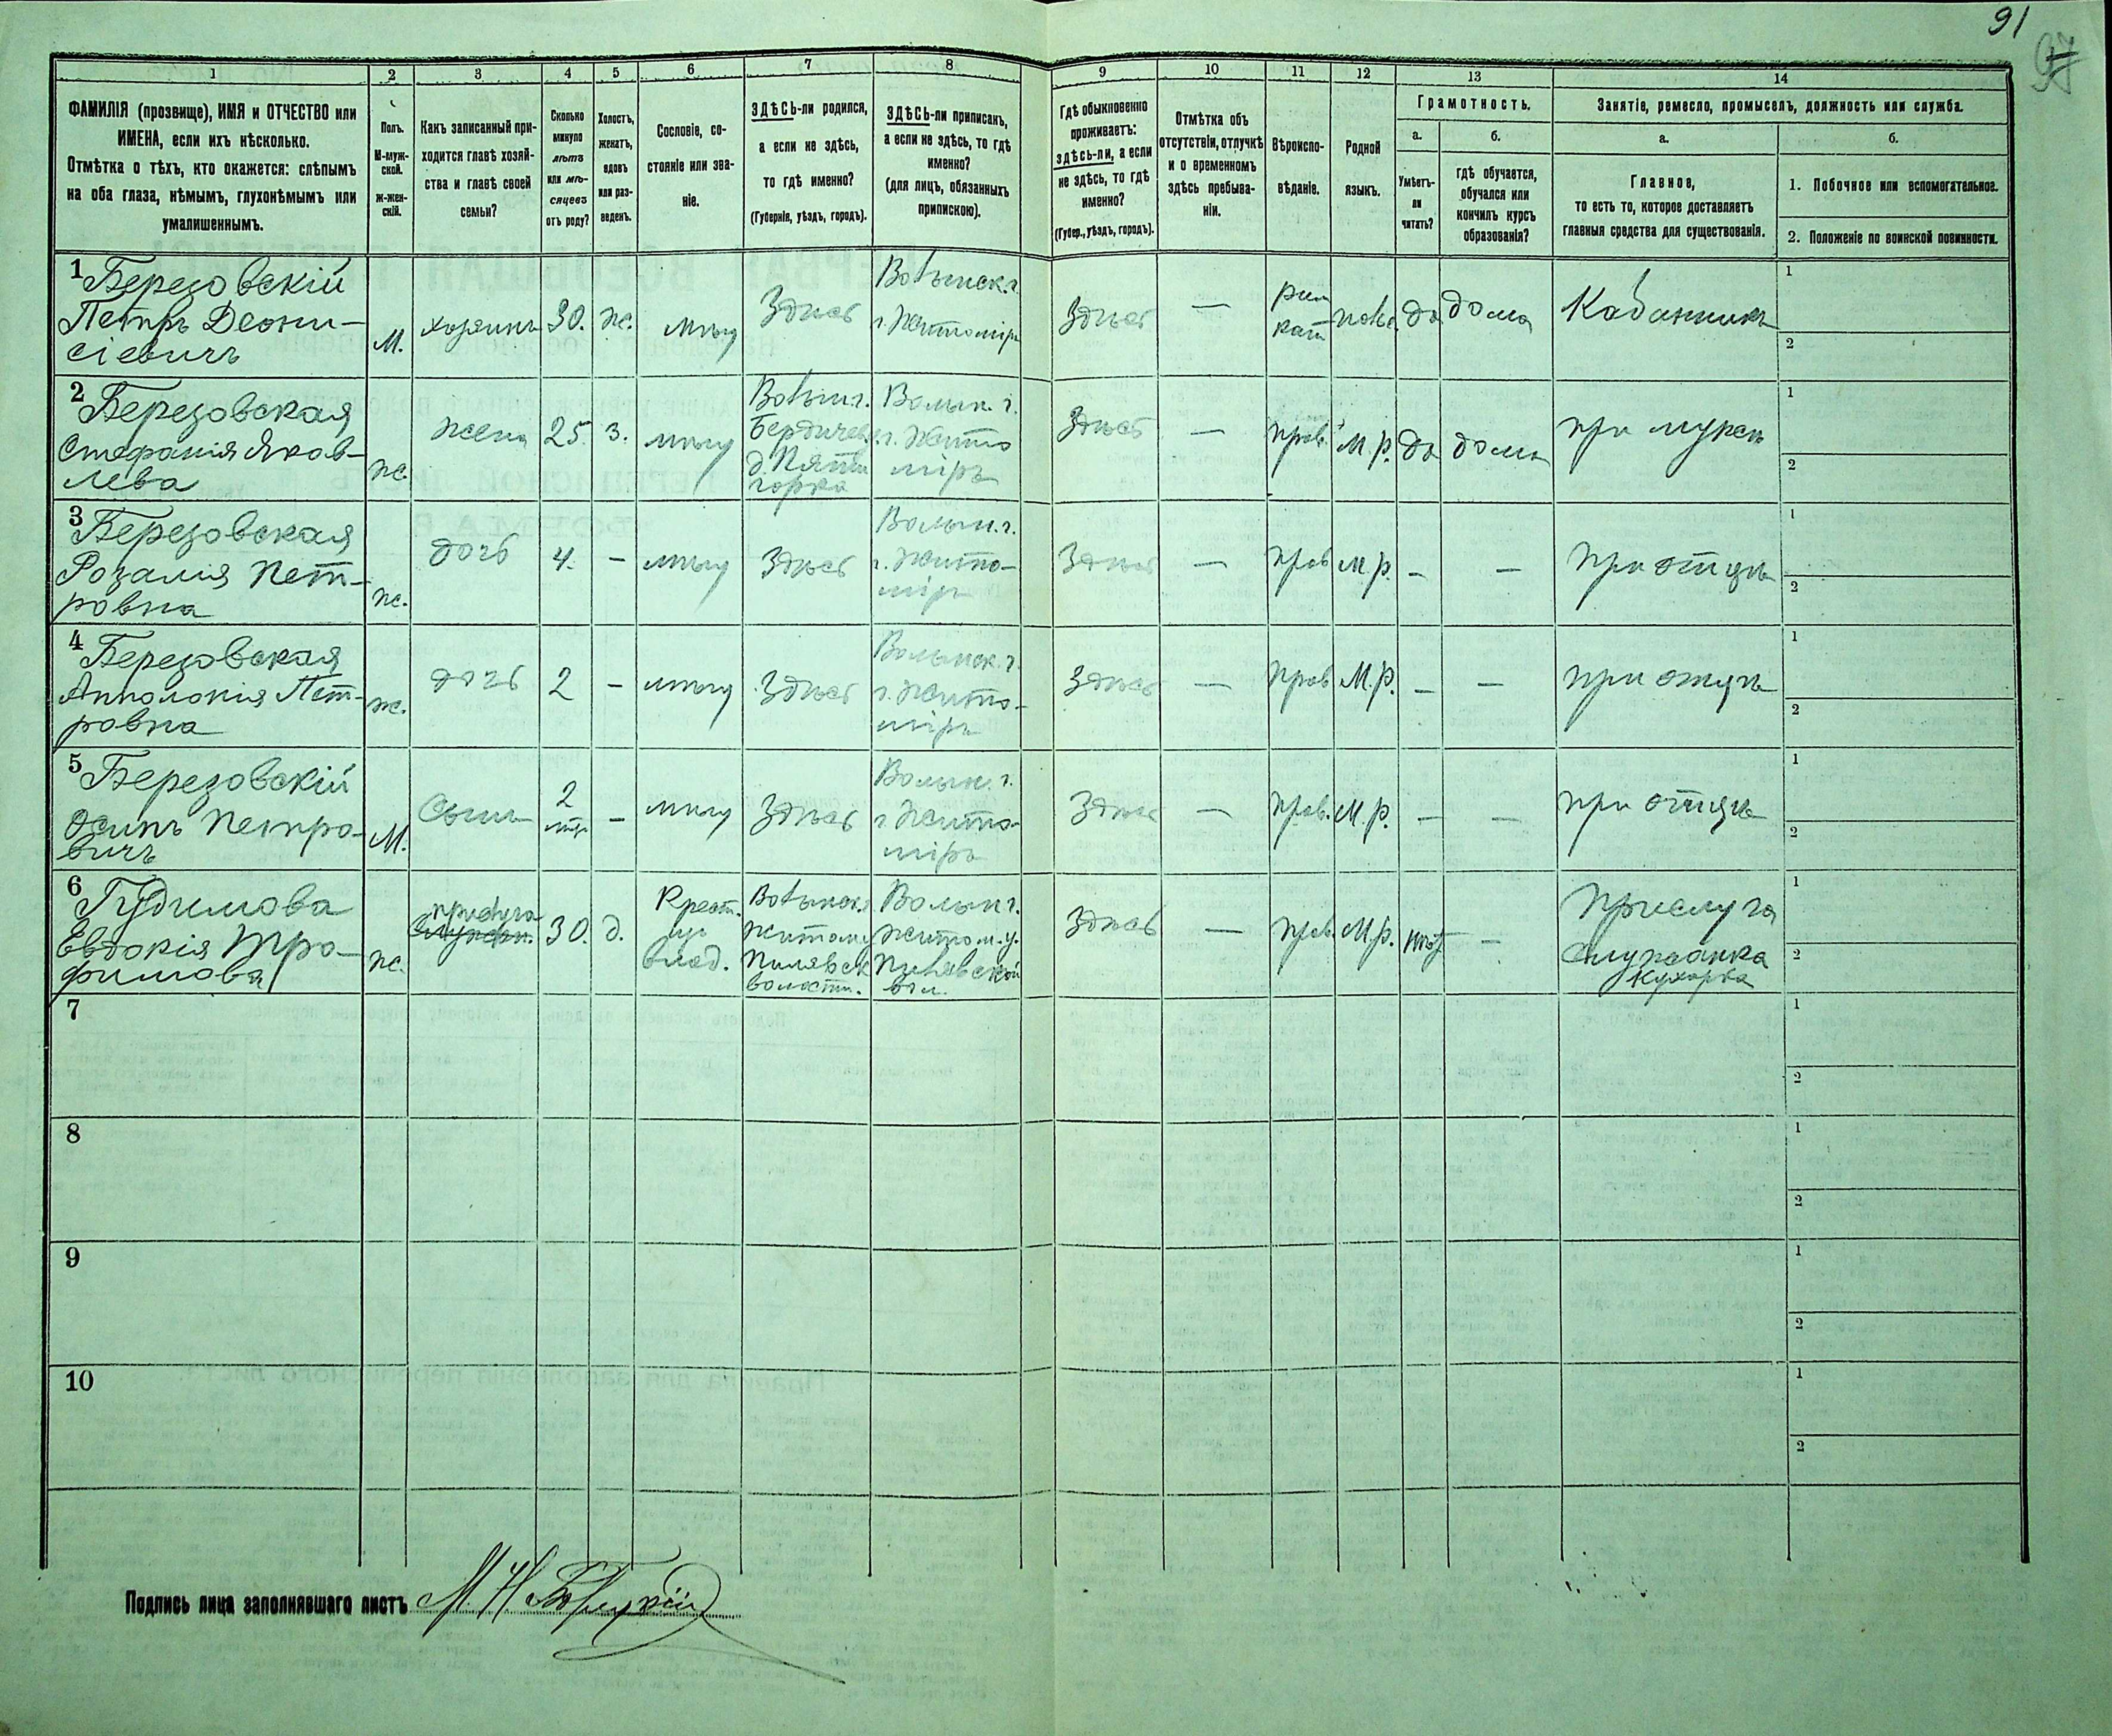 91
97
1 2 3 4 5 6 7 8 9 10 11 12 13 14
ФАМИЛІЯ (прозвище), ИМЯ и ОТЧЕСТВО или
ИМЕНА, если ихъ нѣсколько.
Отмѣтка о тѣхъ, кто окажется: слѣпымъ
на оба глаза, нѣмымъ, глухонѣмымъ или
умалишеннымъ.
Полъ.
М-муж-
ской.
ж-жен-
скій.
Какъ записанный при-
ходится главѣ хозяй-
ства и главѣ своей
семьи?
Сколько
минуло
лѣтъ
или мѣ-
сяцевъ
отъ роду?
Холостъ,
женатъ,
вдовъ
или раз-
веденъ.
Сословіе, со-
стояніе или зва-
ніе.
ЗДѢСЬ-ли родился,
а если не здѣсь,
то гдѣ именно?
(Губернія, уѣздъ, городъ).
ЗДѢСЬ-ли приписанъ,
а если не здѣсь, то гдѣ
именно?
(для лицъ, обязанныхъ
припискою).
Гдѣ обыкновенно
проживаетъ:
здѣсь-ли, а если
не здѣсь, то гдѣ
именно?
(Губер., уѣздъ, городъ).
Отмѣтка объ
отсутствіи, отлучкѣ
и о временномъ
здѣсь пребыва-
ніи.
Вѣроиспо-
вѣданіе.
Родной
языкъ.
Грамотность.
а.
Умѣетъ-
ли
читать?
б.
гдѣ обучается,
обучался или
кончилъ курсъ
образованія?
Занятіе, ремесло, промыселъ, должность или служба.
а.
Главное,
то есть то, которое доставляетъ
главныя средства для существованія.
б.
1. Побочное или вспомогательное.
2. Положеніе по воинской повинности.
1 Березовскій
Петръ Деони-
сіевичъ
М.
хозяинъ
30.
ж.
мѣщ
Здѣсь
Волынск. г.
г. Житоміръ
Здѣсь
—
рим
кат
да
дома
1
2
2 Березовская
Стефанія Яков-
лева
ж.
жена
25.
з.
мѣщ
Волын г.
Бердичев.
д. Пяти
горка
Волын. г.
г. Жито
міръ
Здѣсь
—
прав.
М. р.
да
дома
при мужѣ
1
2
3 Березовская
Розалія Пет-
ровна
ж.
дочь
4.
–
мѣщ
Здѣсь
Волын. г.
г. Жито-
міръ
Здѣсь
—
прав
М. р.
–
–
при отцѣ
1
2
4 Березовская
Апполонія Пет-
ровна
ж.
дочь
2
–
мѣщ
Здѣсь
Волынск. г.
г. Жито-
міръ
Здѣсь
—
прав
М. р.
–
–
при отцѣ
1
2
5 Березовскій
Осипъ Петро-
вичъ
М.
Сынъ
2
–
мѣщ
Здѣсь
Волын. г.
г. Жито-
міръ
Здѣсь
—
прав.
М. р.
–
–
при отцѣ
1
2
6 Гудимова
Евдокія Тро-
фимова
ж.
30.
д.
Крест.
влад.
Волынск.
Житом у
Пилявск
волости.
Волын г.
Житом. у.
Пилявской
вол.
Здѣсь
—
прав.
М. р.
нѣт
–
Прислуга
служанка
кухарка
1
2
7
1
2
8
1
2
9
1
2
10
1
2
Подпись лица заполнявшаго листъ